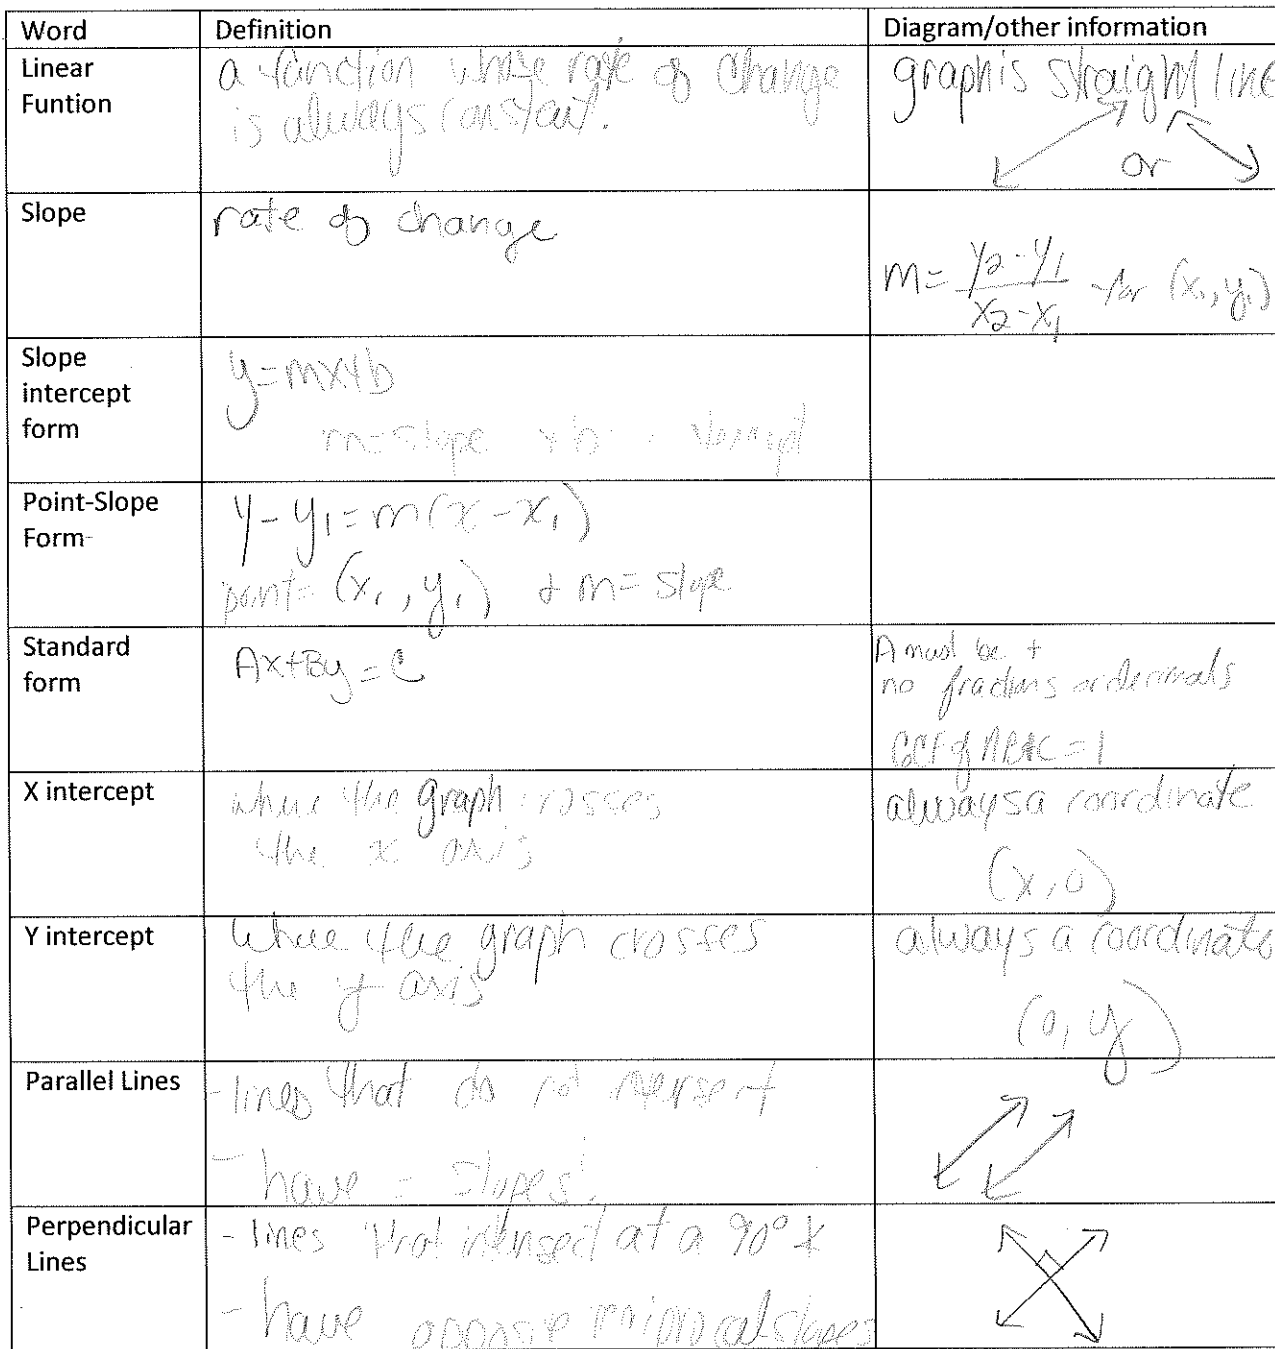 Word Definition Diagram/other information
Linear Funtion
a function whose rate of change
is always constant.
graph is straight line
or
Slope
rate of change
m = y₂ - y₁ / x₂ - x₁ for (x₁, y₁)
Slope intercept form
y = mx + b
m = slope + b
Point-Slope Form-
y - y₁ = m(x - x₁)
point = (x₁, y₁) + m = slope
Standard form
Ax + By = C
A must be +
no fractions or decimals
GCF of AB&C = 1
X intercept
where the graph crosses
the x axis
always a coordinate
(x, 0)
Y intercept
where the graph crosses
the y axis
always a coordinate
(0, y)
Parallel Lines
- lines that do not intersect
- have = slopes!
Perpendicular Lines
- lines that intersect at a 90°
- have opposite reciprocal slopes